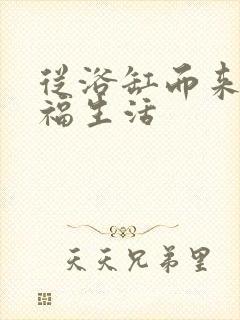 從浴缸而来
福生活
天天兄弟里